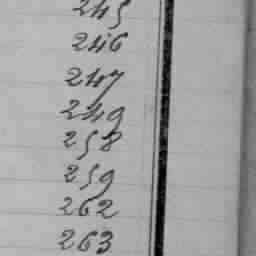 245
246
247
249
258
259
262
263